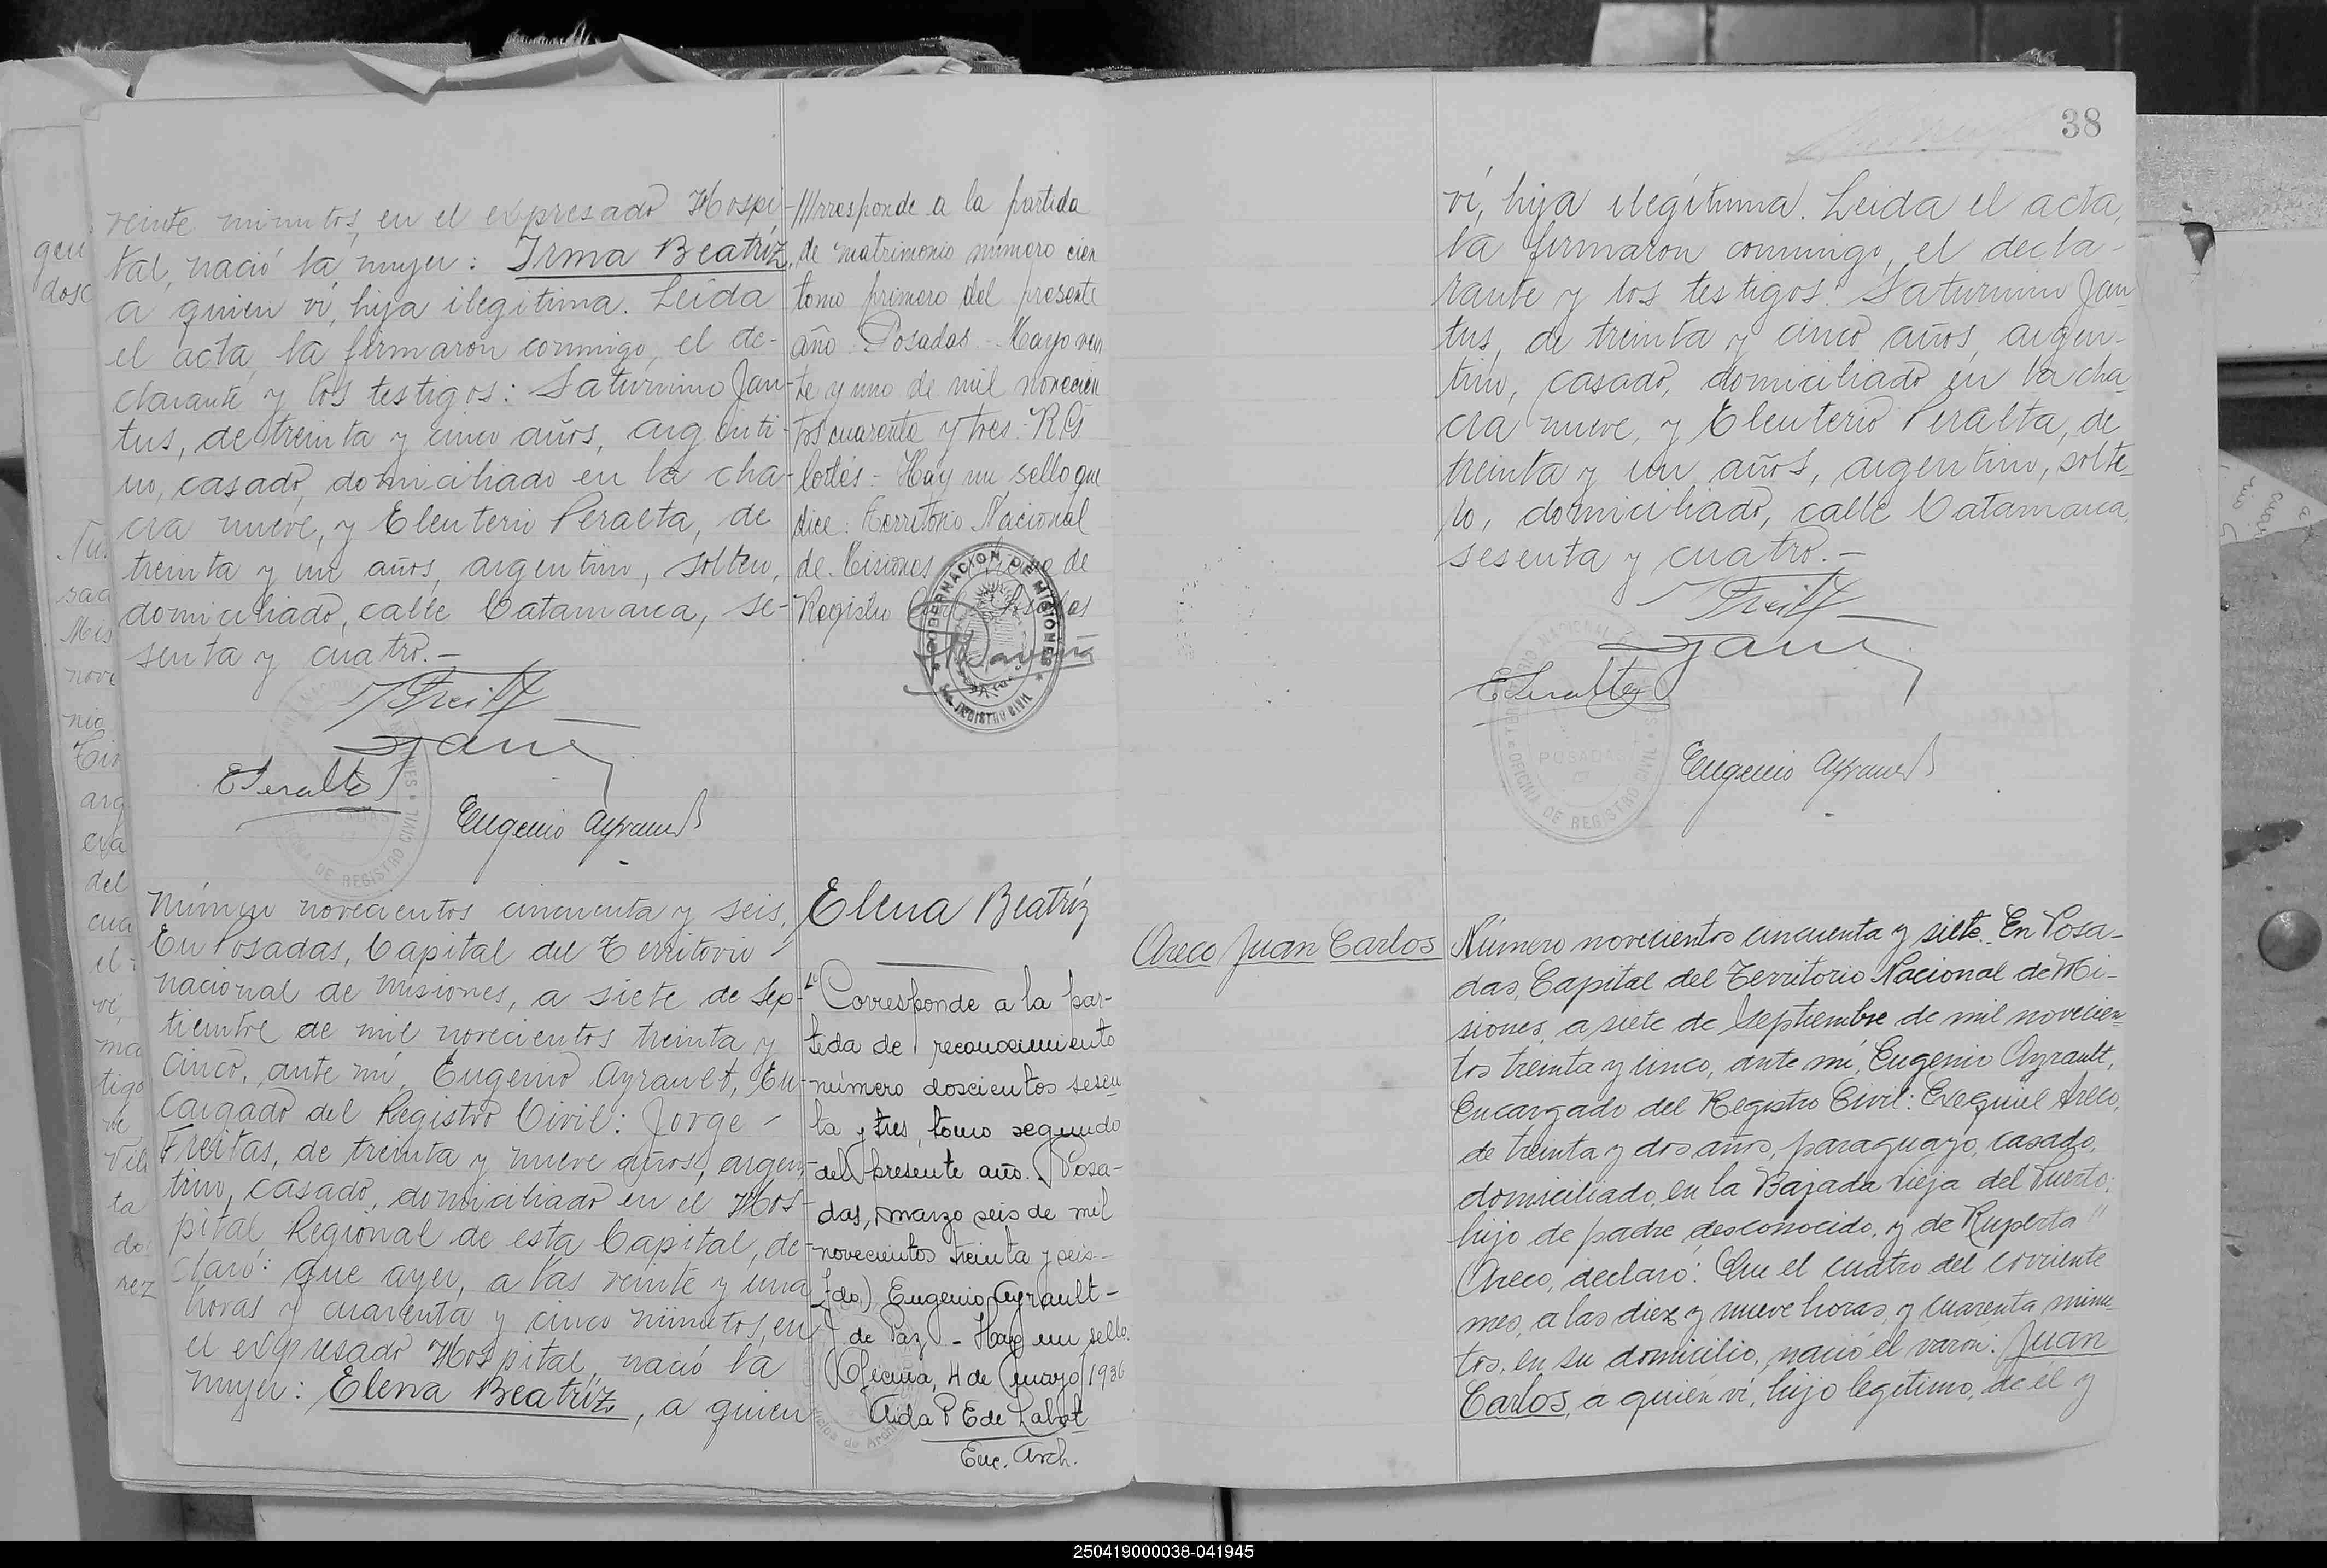 veinte minutos, en el expresado Hospi-
tal, nació la mujer: Irma Beatríz,
a quien ví, hija ilegítima. Leída
el acta, la firmaron conmigo, el de-
clarante y los testigos: Saturnino Jan-
tus, de treinta y cinco años, argenti-
no, casado, domiciliado en la cha-
cra nueve, y Eleuterio Peralta, de
treinta y un años, argentino, soltero,
domiciliado, calle Catamarca, se-
senta y cuatro.-
J Freitas
EPeralta
Eugenio Ayrault
///rresponde a la partida
de matrimonio número cien
tomo primero del presente
año. Posadas - Mayo vein
te y uno de mil novecien
tos cuarenta y tres. R.G.
Cortés - Hay un sello que
dice: Territorio Nacional
de Misiones de
Registro Posadas
GOBERNACION DE MISIONES
REGISTRO CIVIL
Número novecientos cincuenta y seis.
En Posadas, Capital del Territorio
nacional de Misiones, a siete de Sep-
tiembre de mil novecientos treinta y
cinco, ante mí, Eugenio Ayrault, En-
cargado del Registro Civil: Jorge
Freitas, de treinta y nueve años, argen-
tino, casado, domiciliado en el Hos-
pital Regional de esta Capital, de-
claró: que ayer, a las veinte y una
horas y cuarenta y cinco minutos, en
el expresado Hospital, nació la
mujer: Elena Beatríz, a quien
Elena Beatríz
"Corresponde a la par-
tida de reconocimiento
número doscientos sesen
ta y tres, tomo segundo
del presente año. Posa-
das, marzo seis de mil
novecientos treinta y seis-
fdo) Eugenio Ayrault-
J. de Paz - Hay un sello.
Oficina, 4 de mayo/1936
Aida P E de Labat
Enc. Arch.
38
ví, hija ilegítima. Leída el acta,
la firmaron conmigo, el decla-
rante y los testigos: Saturnino Jan-
tus, de treinta y cinco años, argen-
tino, casado, domiciliado en la cha
cra nueve, y Eleuterio Peralta, de
treinta y un años, argentino, solte-
ro, domiciliado, calle Catamarca,
sesenta y cuatro.-
J Freitas
EPeralta
Eugenio Ayrault
TERRITORIO NACIONAL
POSADAS
OFICINA DE REGISTRO CIVIL
Areco Juan Carlos
Número novecientos cincuenta y siete. En Posa-
das, Capital del Territorio Nacional de Mi-
siones, a siete de Septiembre de mil novecien-
tos treinta y cinco, ante mí, Eugenio Ayrault,
Encargado del Registro Civil: Exequiel Areco,
de treinta y dos años, paraguayo, casado,
domiciliado, en la Bajada Vieja del Puerto;
hijo de padre desconocido, y de Ruperta "
Areco, declaró: Que el cuatro del corriente
mes, a las diez y nueve horas, y cuarenta minu-
tos, en su domicilio, nació el varon: Juan
Carlos, a quién ví, hijo legítimo, de él y
250419000038-041945